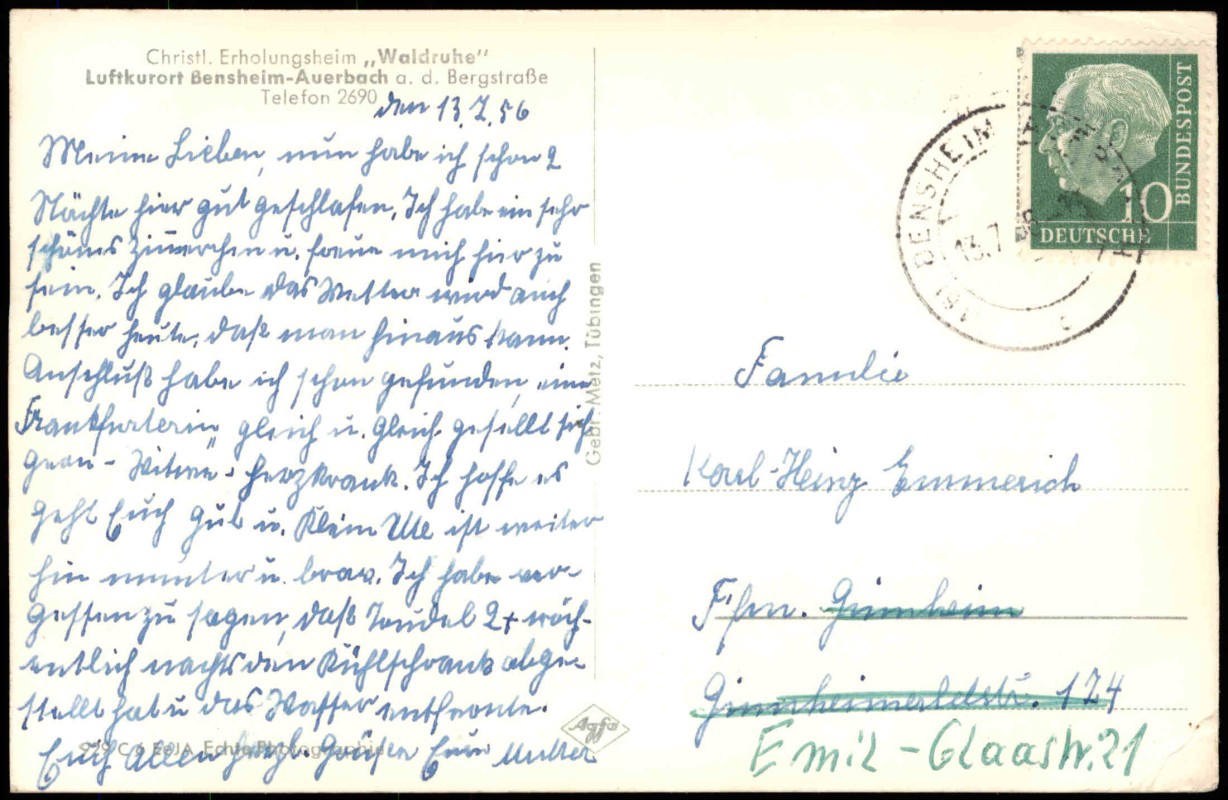 Christl. Erholungsheim „Waldruhe"
Luftkurort Bensheim-Auerbach a. d. Bergstraße
Telefon 2690
den 13.7.56
Meine Lieben, nun habe ich schon 2
Nächte hier gut geschlafen. Ich habe ein sehr
schönes Zimmerchen u. freue mich hier zu
sein. Ich glaube das Wetter wird auch
besser heute, daß man hinaus kann.
Anschluß habe ich schon gefunden, eine
Frankfurterin, gleich u. Gleich gesellt sich
gern - Witwe - herzkrank. Ich hoffe es
geht Euch gut u. Klein Ute ist weiter
hin munter u. brav. Ich habe ver-
gessen zu sagen, daß 2x wöch-
entlich nachts den Kühlschrank abge-
stellt hat u das Wasser entfernte.
Euch Allen herzl. Grüße Eure Mutter
929 C 6 Echte Photographie
Gebr. Metz, Tübingen
Agfa
BENSHEIM
13.7
10
DEUTSCHE
BUNDESPOST
Familie
Karl-Heinz Emmerich
Ffm. Ginnheim
174
Emil-Claarstr. 21